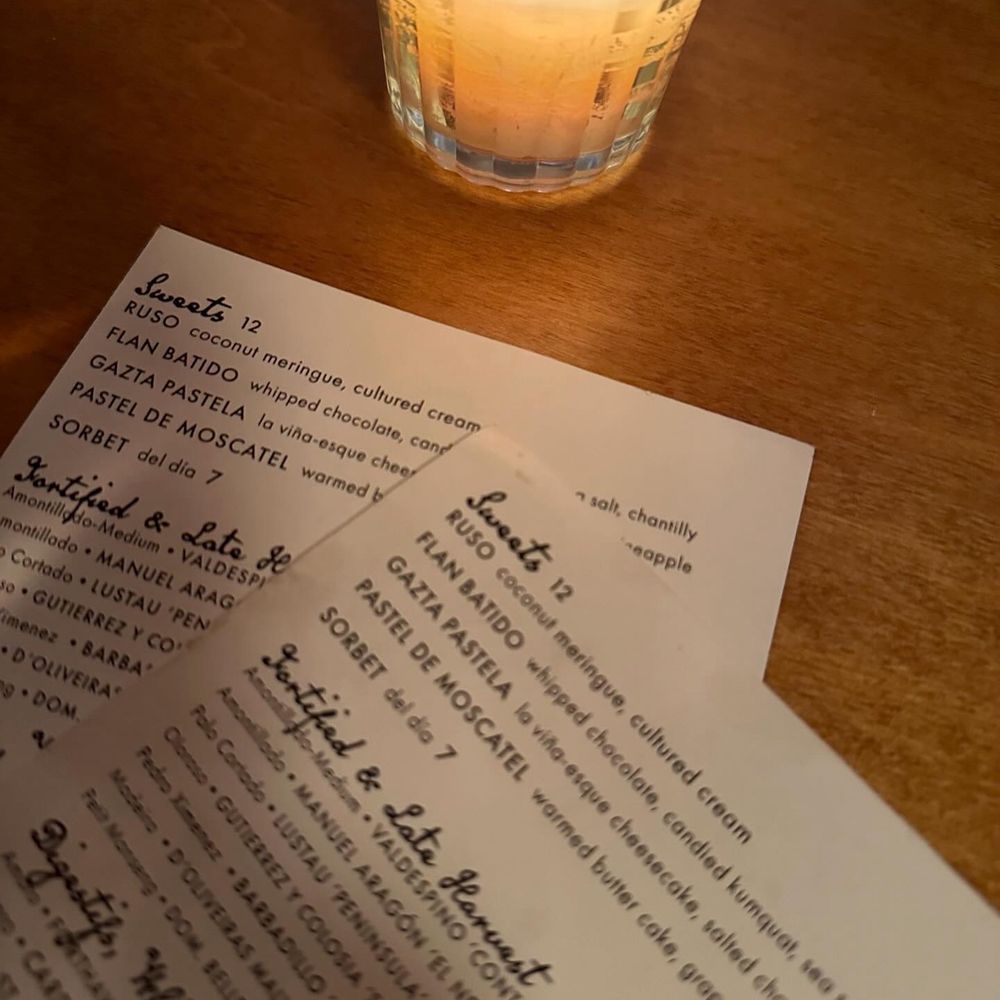 Sweets 12
RUSO coconut meringue, cultured cream
FLAN BATIDO whipped chocolate, cand
GAZTA PASTELA la viña-esque chee
PASTEL DE MOSCATEL warmed b
SORBET del día 7
salt, chantilly
neapple
Fortified & Late H
Amontillado-Medium • VALDESPI
montillado • MANUEL ARAG
o Cortado • LUSTAU 'PEN
so • GUTIERREZ Y CO
imenez • BARBA
• D'OLIVEIRA
ng • DOM.
Sweets 12
RUSO coconut meringue, cultured cream
FLAN BATIDO whipped chocolate, candied kumquat, sea
GAZTA PASTELA la viña-esque cheesecake, salted cho
PASTEL DE MOSCATEL warmed butter cake, grap
SORBET del día 7
Fortified & Late Harvest
Amontillado-Medium • VALDESPINO 'CONT
Amontillado • MANUEL ARAGÓN 'EL N
Palo Cortado • LUSTAU 'PENINSULA'
Oloroso • GUTIERREZ Y COLOSIA
Pedro Ximenez • BARBADILLO
Madeira • D'OLIVEIRAS MA
Petit Manseng • DOM. BELL
Digestifs,